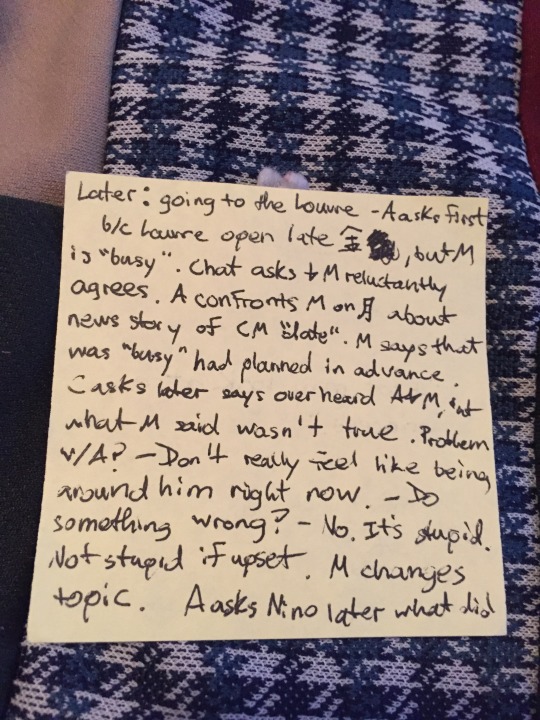 Later: going to the Louvre - A asks first
b/c Louvre open late 金, but M
is "busy". Chat asks & M reluctantly
agrees. A confronts M on 月 about
news story of CM "date". M says that
was "busy" had planned in advance.
C asks later says overheard A & M, but
what M said wasn't true. Problem
w/A? - Don't really feel like being
around him right now. - Do
something wrong? - No. It's stupid.
Not stupid if upset. M changes
topic. A asks Nino later what did